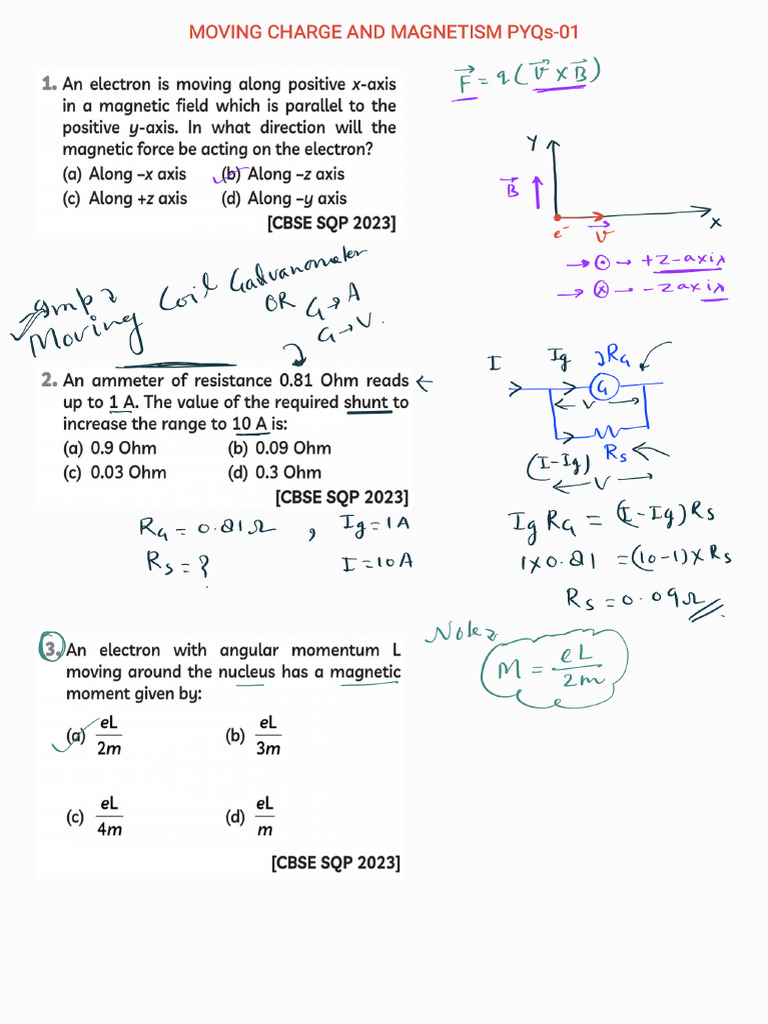 MOVING CHARGE AND MAGNETISM PYQs-01
1. An electron is moving along positive x-axis
in a magnetic field which is parallel to the
positive y-axis. In what direction will the
magnetic force be acting on the electron?
(a) Along –x axis (b) Along –z axis
(c) Along +z axis (d) Along –y axis
[CBSE SQP 2023]
F⃗ = q(V⃗ × B⃗)
Y
B⃗
e⁻ V⃗ X
→ ⊙ → +z-axis
→ ⊗ → -z axis
Imp
Moving Coil Galvanometer
OR G→A
G→V.
2. An ammeter of resistance 0.81 Ohm reads
up to 1 A. The value of the required shunt to
increase the range to 10 A is:
(a) 0.9 Ohm (b) 0.09 Ohm
(c) 0.03 Ohm (d) 0.3 Ohm
[CBSE SQP 2023]
I Ig RG
G
V
(I-Ig) Rs
V
RG = 0.81Ω , Ig = 1A
Rs = ? I = 10A
Ig RG = (I-Ig) Rs
1×0.81 = (10-1)×Rs
Rs = 0.09Ω
3. An electron with angular momentum L
moving around the nucleus has a magnetic
moment given by:
(a) eL/2m (b) eL/3m
(c) eL/4m (d) eL/m
[CBSE SQP 2023]
Note
M = eL/2m